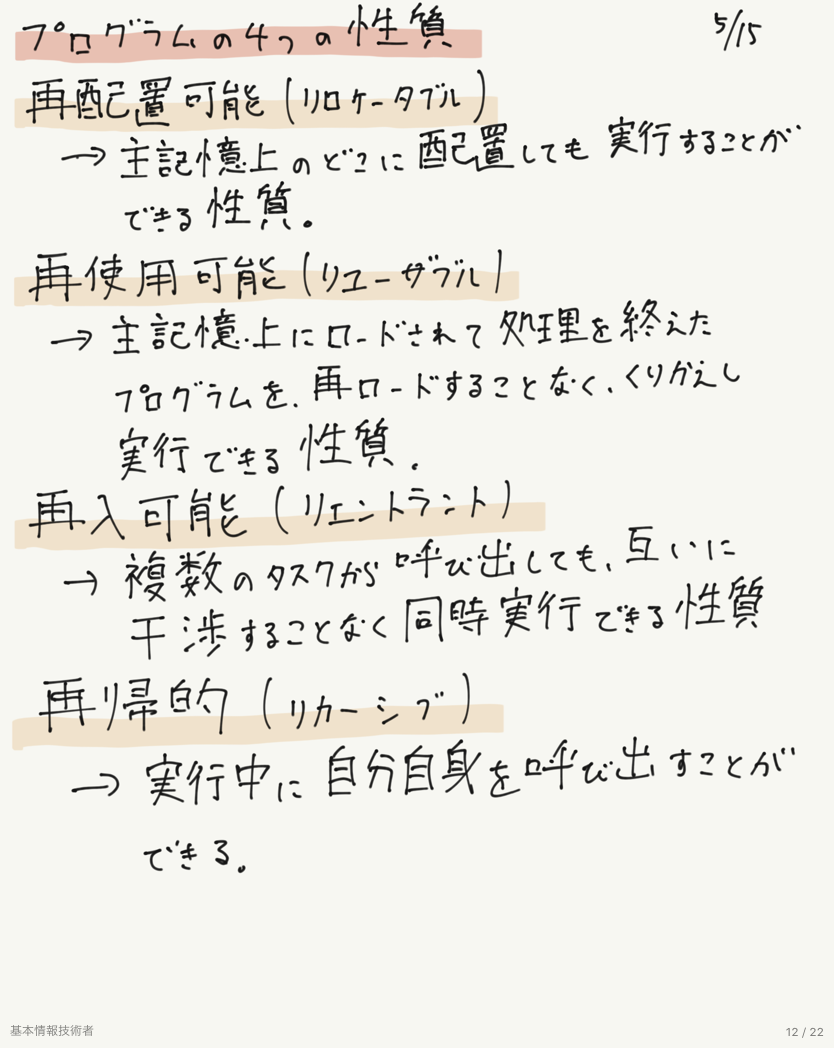 プログラムの4つの性質
5/15
再配置可能(リロケータブル)
→ 主記憶上のどこに配置しても実行することが
できる性質。
再使用可能(リユーザブル)
→ 主記憶上にロードされて処理を終えた
プログラムを、再ロードすることなく、くりかえし
実行できる性質.
再入可能(リエントラント)
→ 複数のタスクから呼び出しても、互いに
干渉することなく同時実行できる性質
再帰的(リカーシブ)
→ 実行中に自分自身を呼び出すことが
できる。
基本情報技術者
12 / 22